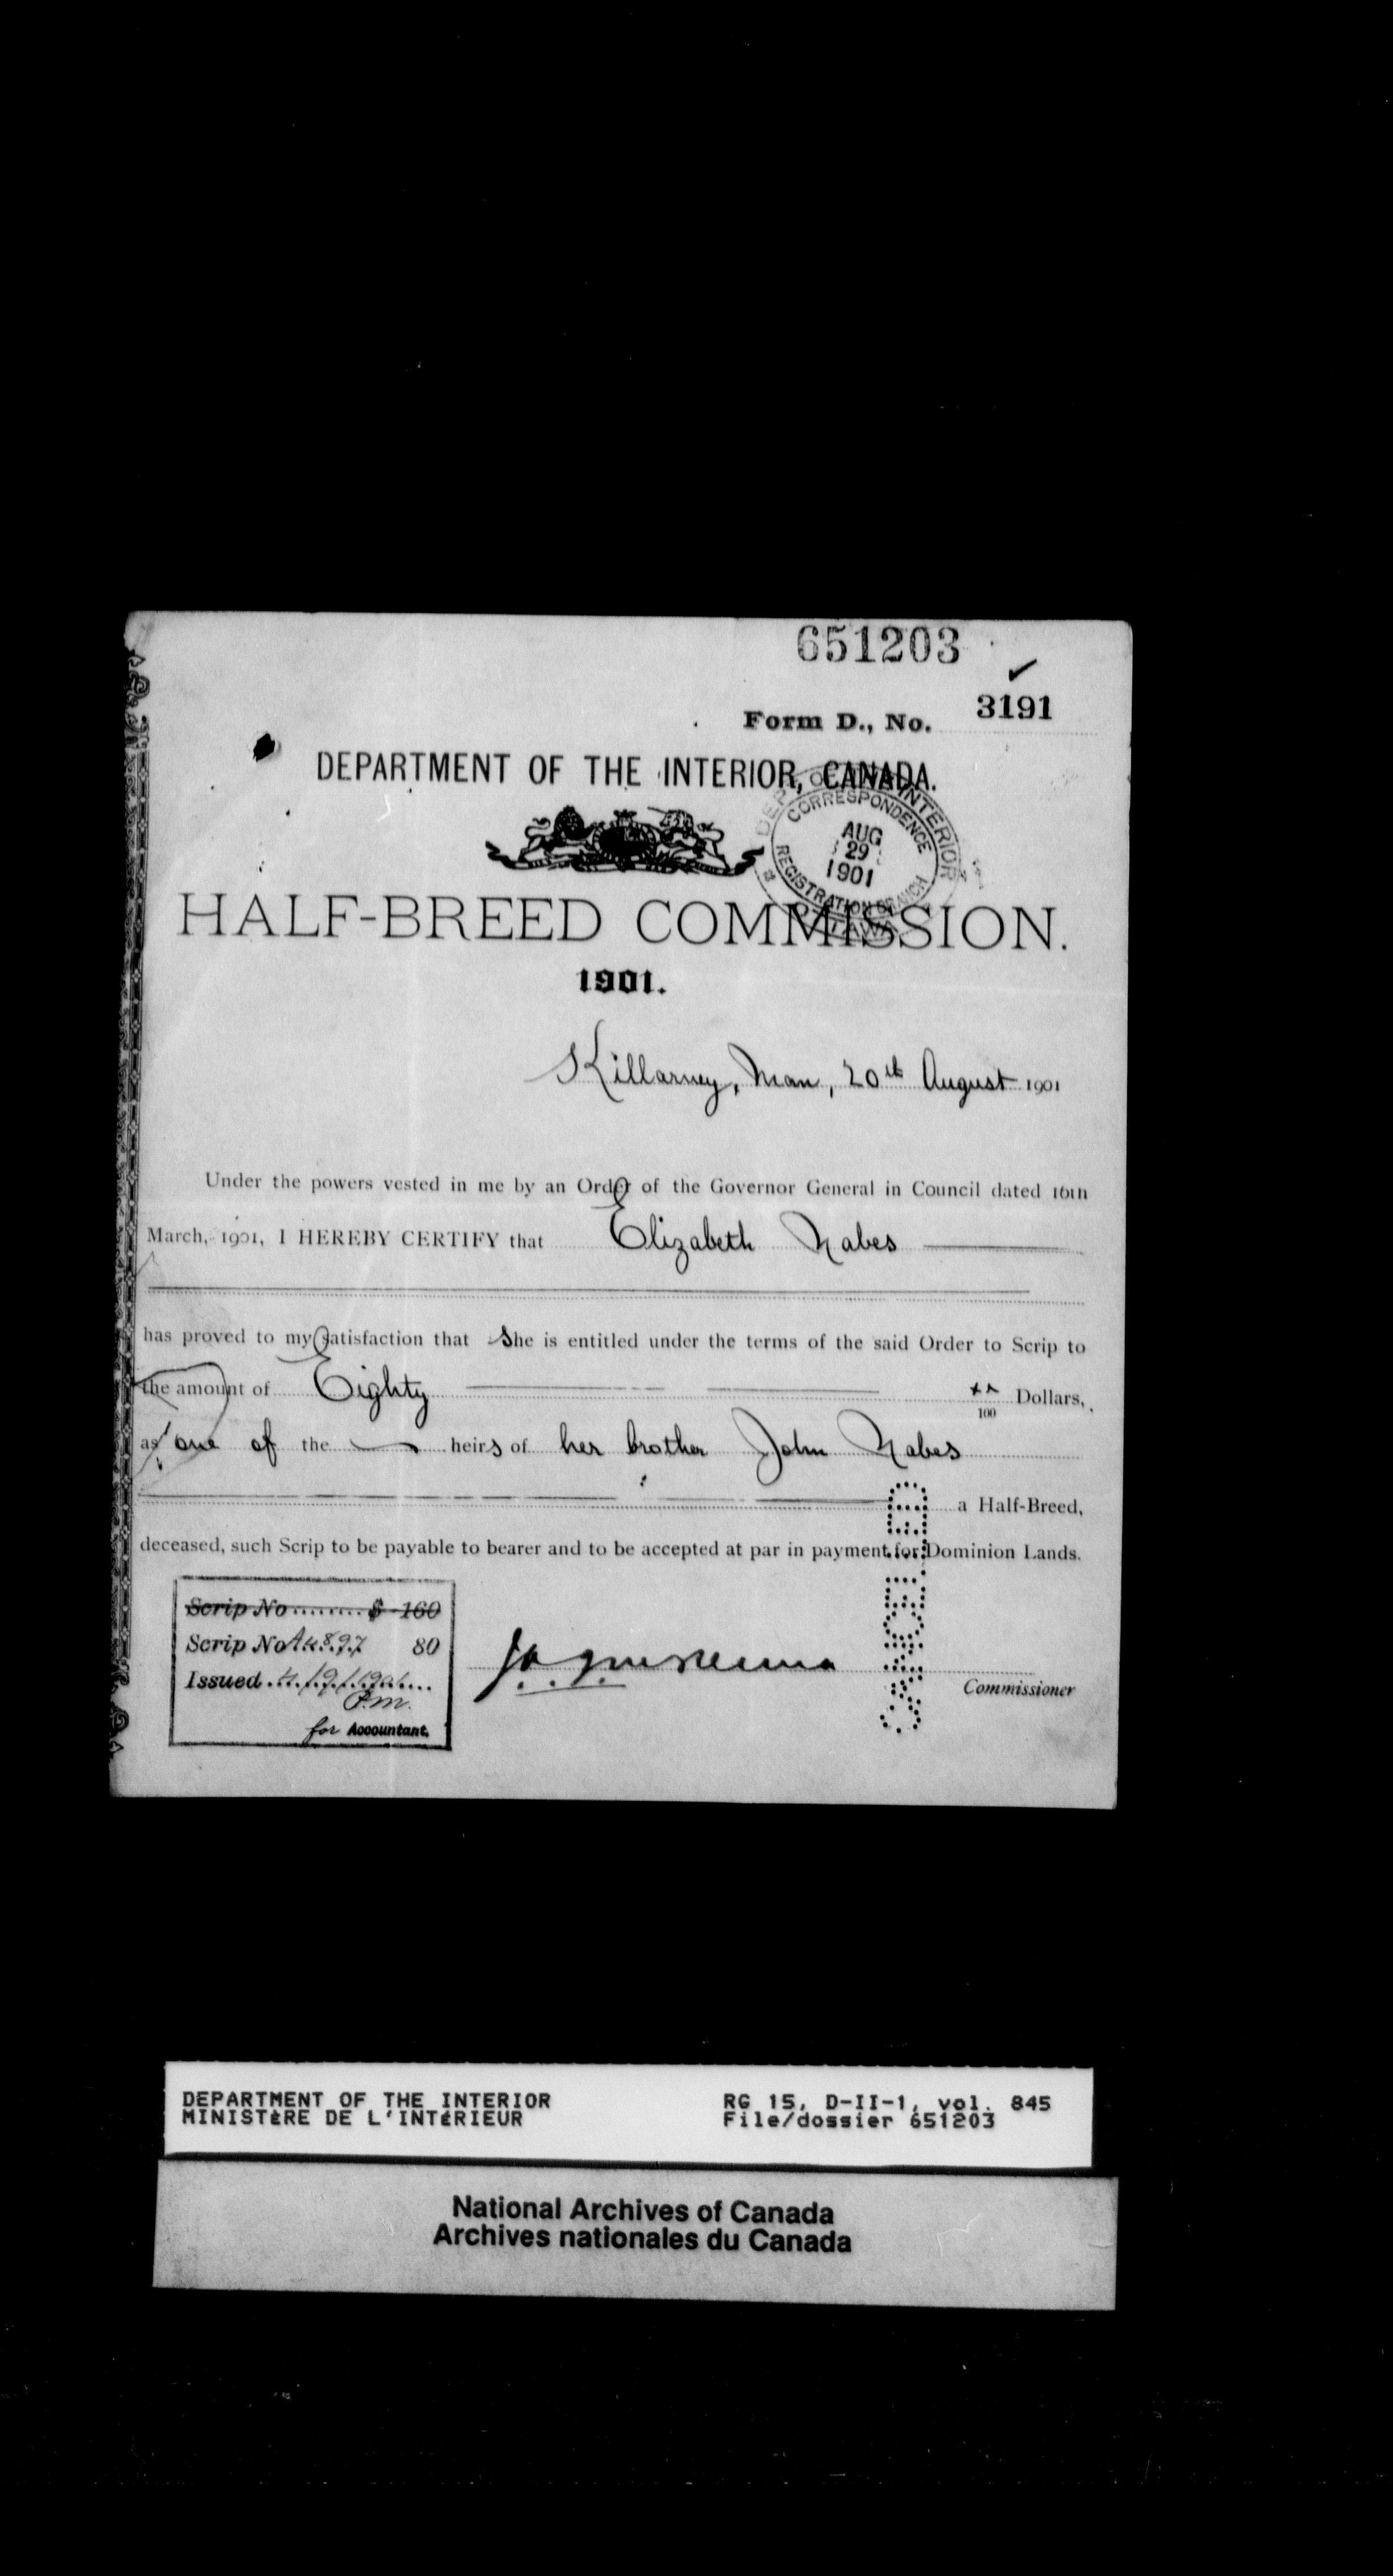 651203
Form D., No. 3191
DEPARTMENT OF THE INTERIOR, CANADA.
DEPT. OF THE INTERIOR
CORRESPONDENCE
AUG
29
1901
REGISTRATION BRANCH
OTTAWA
HALF-BREED COMMISSION.
1901.
Killarney, Man, 20th August 1901
Under the powers vested in me by an Order of the Governor General in Council dated 16th
March, 1901, I HEREBY CERTIFY that Elizabeth Nabes
has proved to my satisfaction that She is entitled under the terms of the said Order to Scrip to
the amount of Eighty xx/100 Dollars,
as one of the heirs of her brother John Nabes
a Half-Breed,
deceased, such Scrip to be payable to bearer and to be accepted at par in payment for Dominion Lands.
CANCELLED
Scrip No........$ 160
Scrip No A4897 80
Issued 4/9/1901
P.M.
for Accountant.
Commissioner
DEPARTMENT OF THE INTERIOR
MINISTÈRE DE L'INTÉRIEUR
RG 15, D-II-1, vol. 845
File/dossier 651203
National Archives of Canada
Archives nationales du Canada